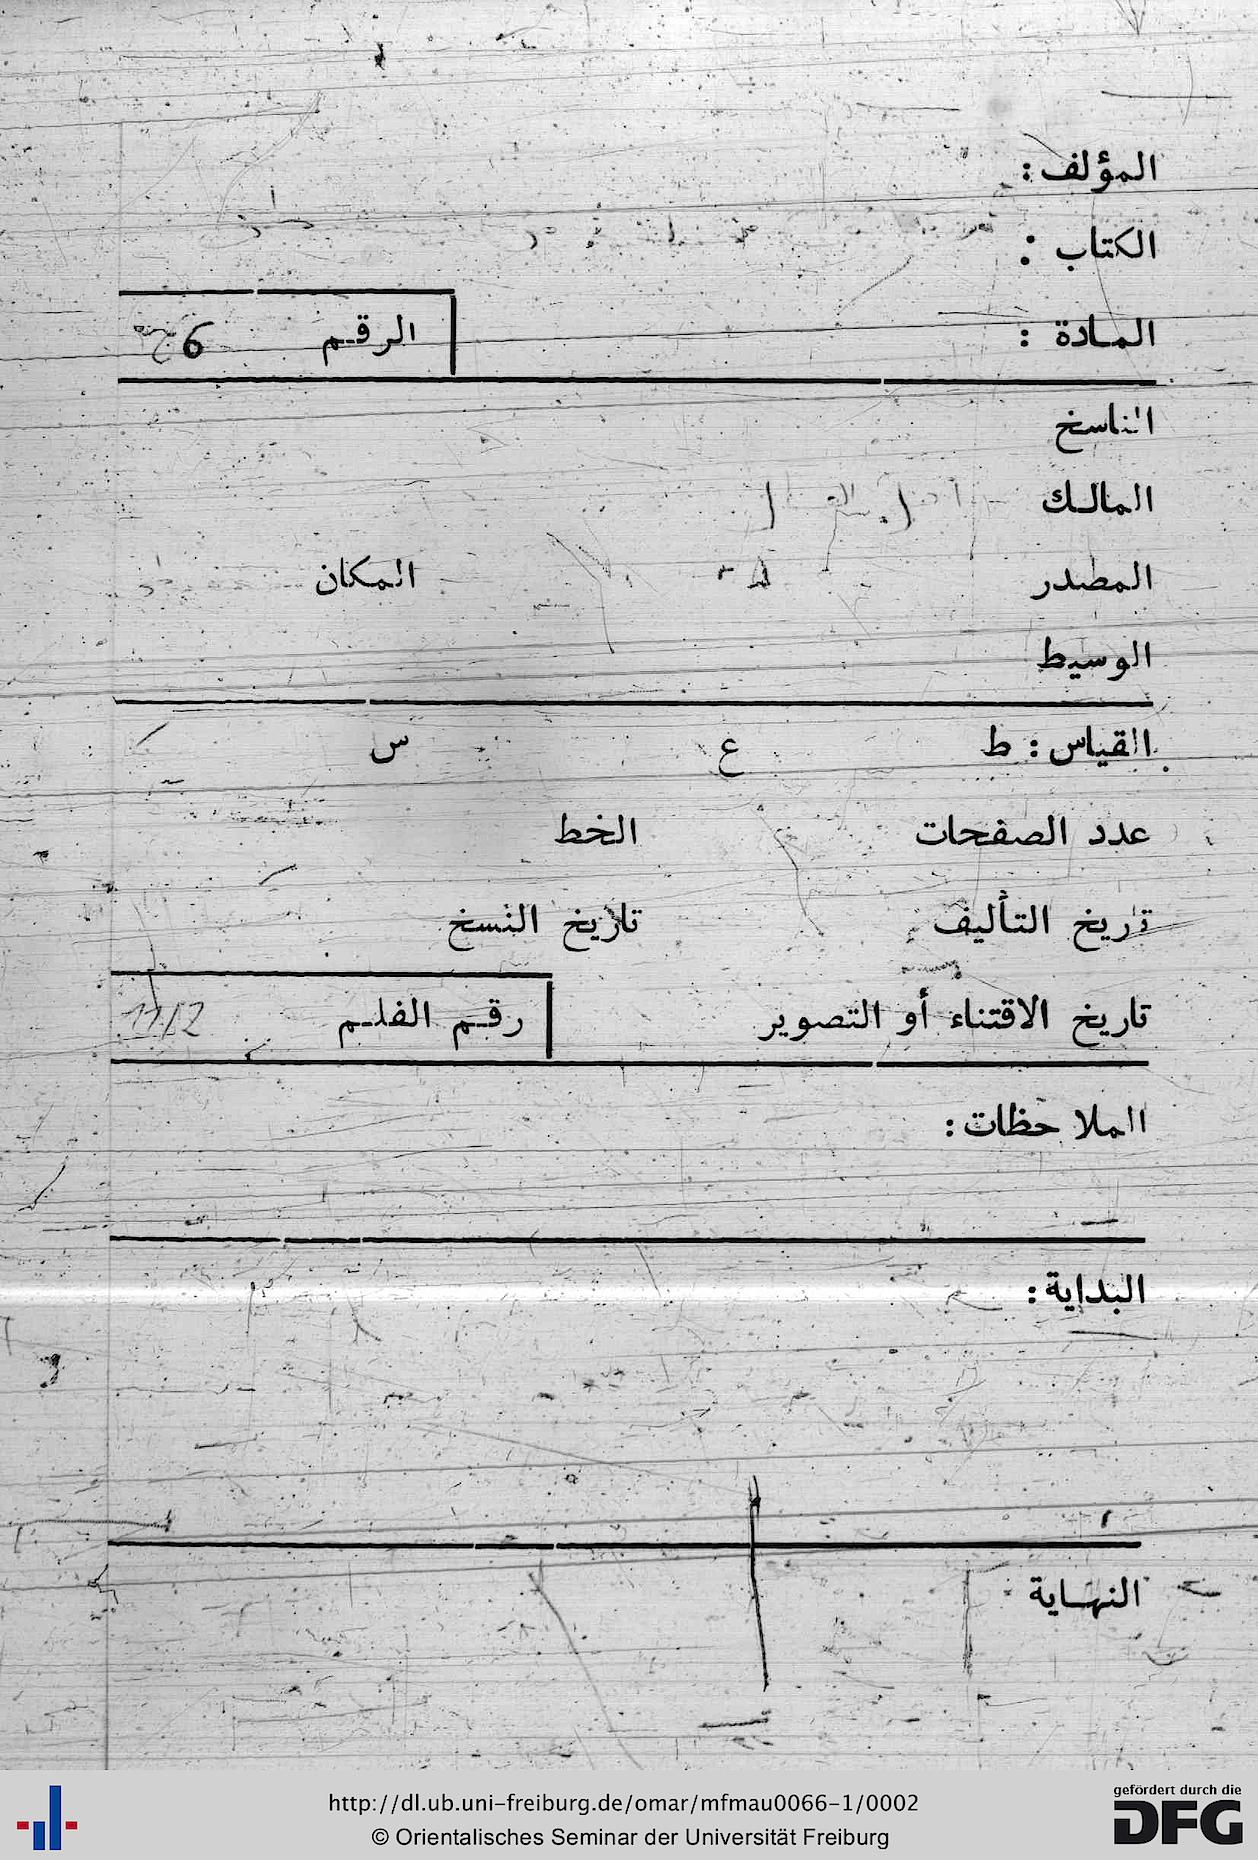 المؤلف :
الكتاب :
المادة :
الرقم 6
الناسخ
المالك
المصدر
المكان
الوسيط
القياس : ط ع س
عدد الصفحات الخط
تاريخ التأليف تاريخ النسخ
تاريخ الاقتناء أو التصوير
رقم الفلم
الملاحظات :
البداية :
النهاية
http://dl.ub.uni-freiburg.de/omar/mfmau0066-1/0002
© Orientalisches Seminar der Universität Freiburg
gefördert durch die
DFG